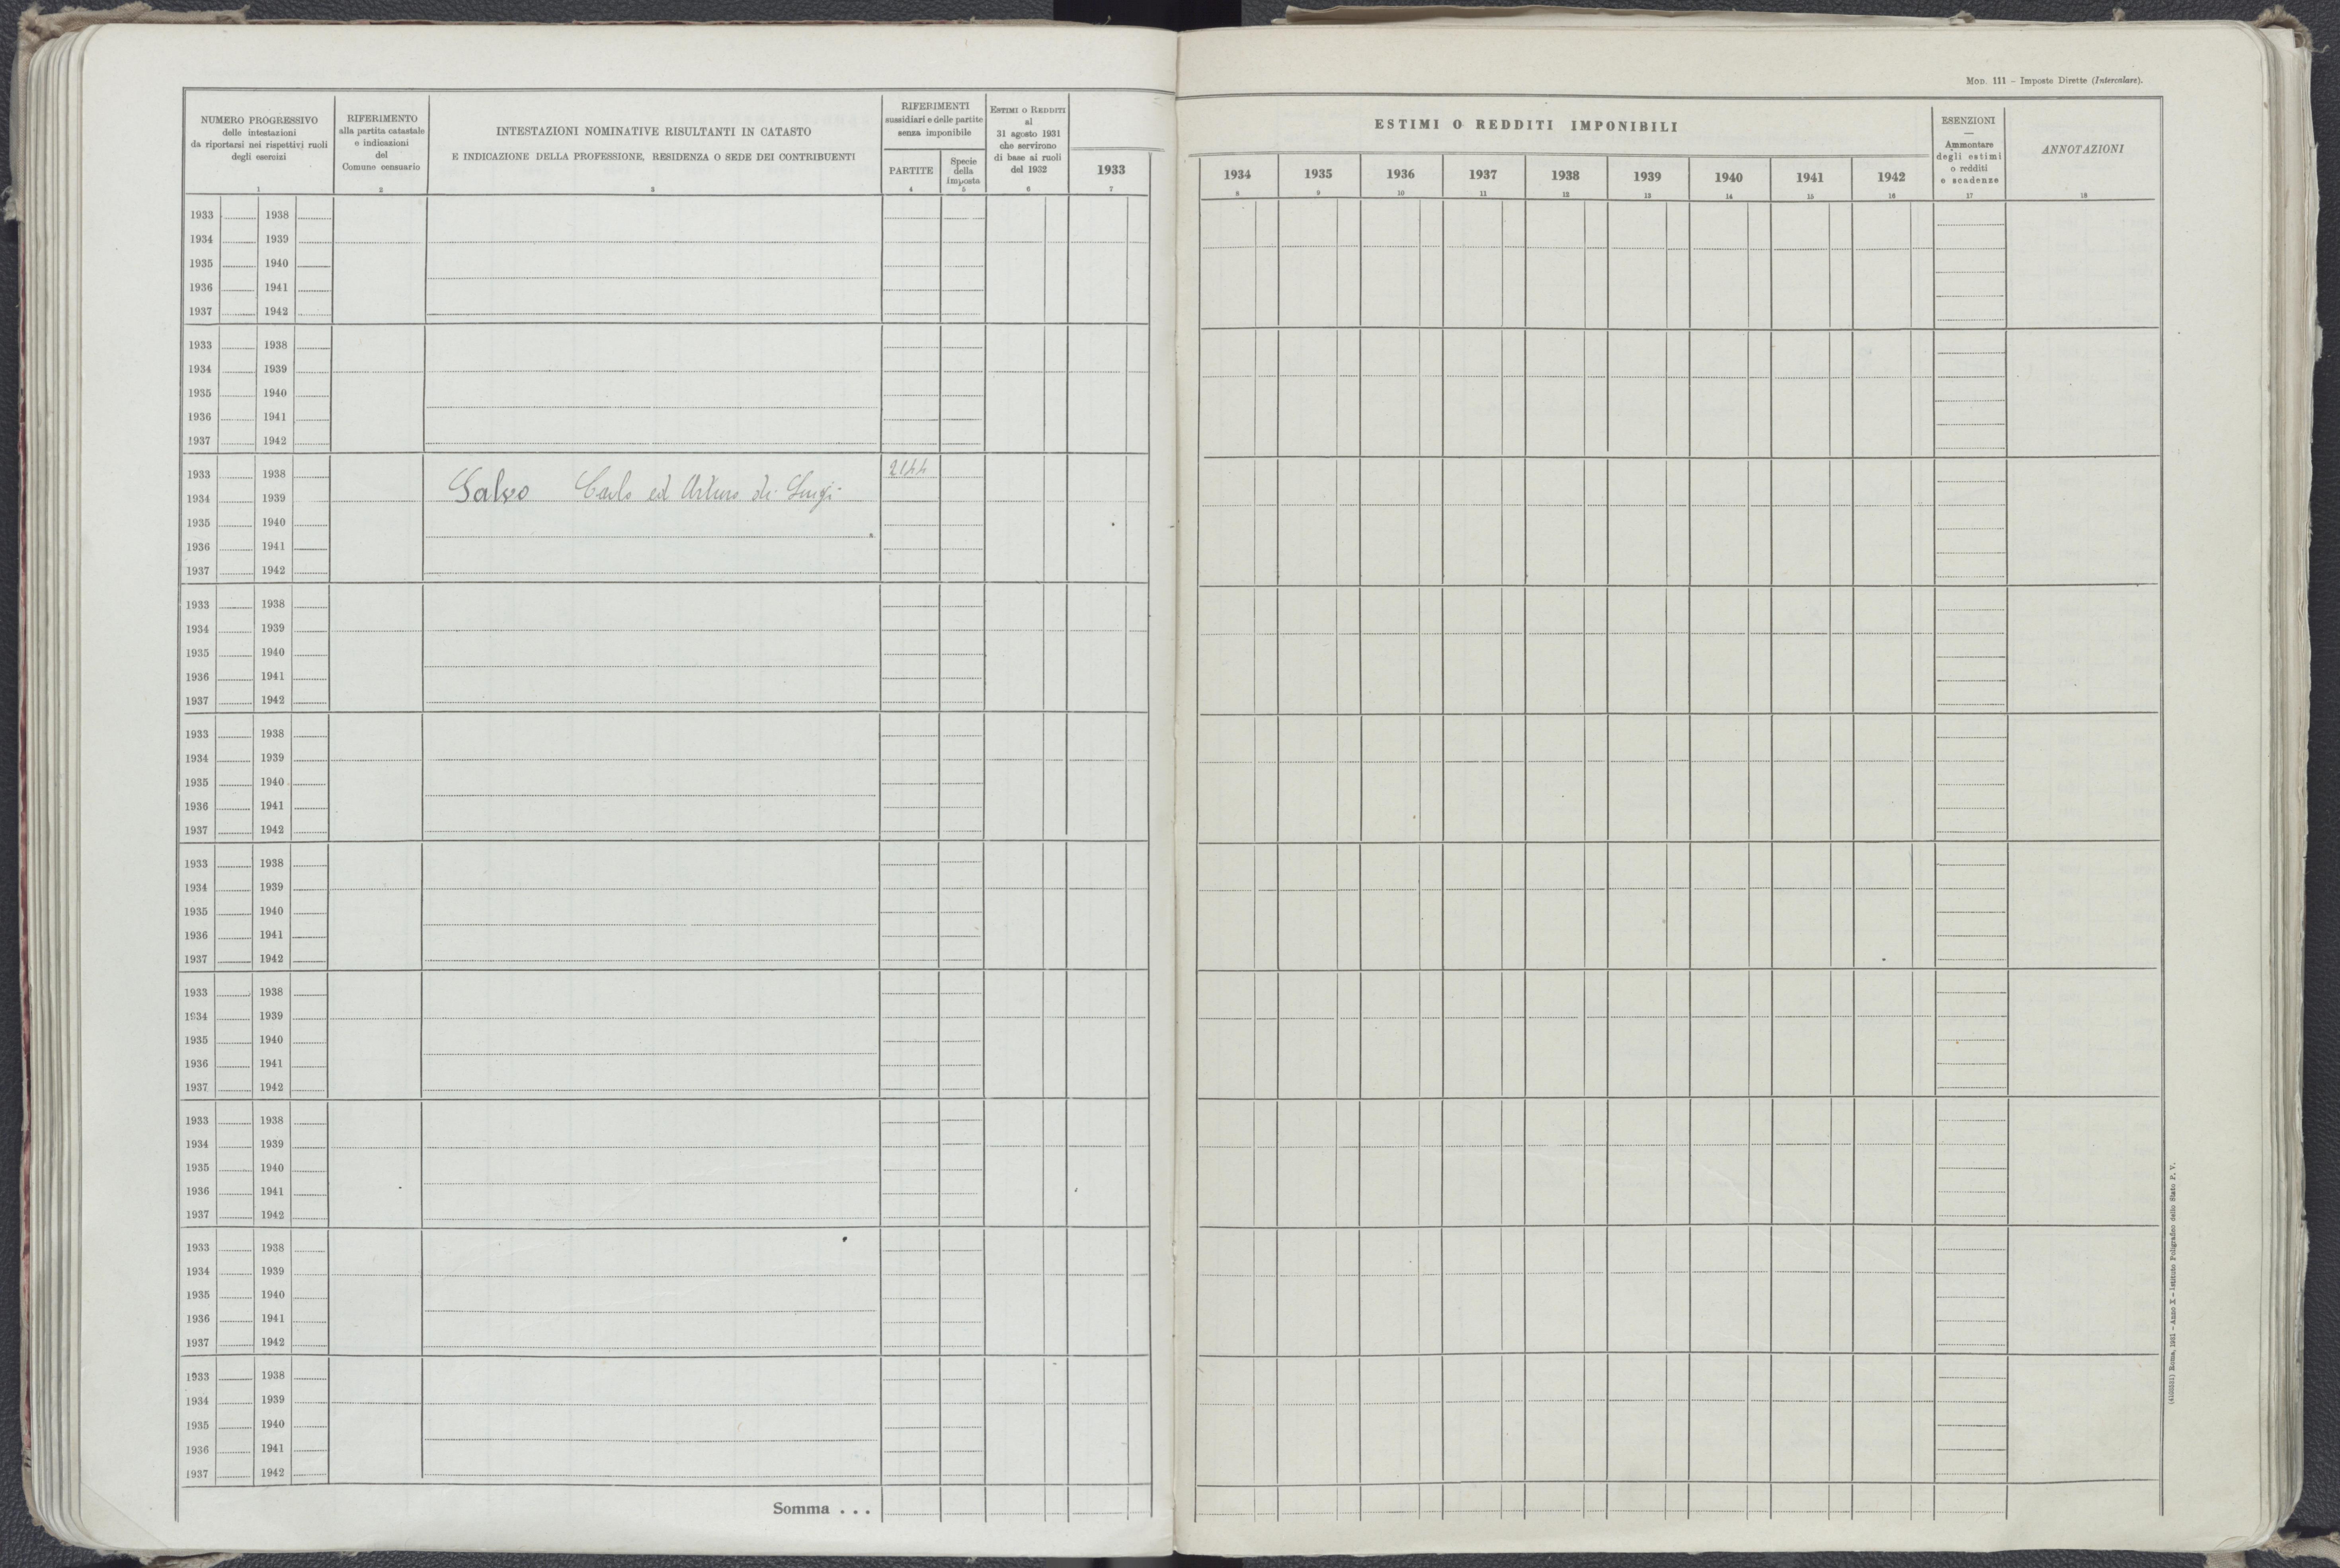 MOD. 111 – Imposte Dirette (Intercalare).
NUMERO PROGRESSIVO
delle intestazioni
da riportarsi nei rispettivi ruoli
degli esercizi
1
RIFERIMENTO
alla partita catastale
e indicazioni
del
Comune censuario
2
INTESTAZIONI NOMINATIVE RISULTANTI IN CATASTO
E INDICAZIONE DELLA PROFESSIONE, RESIDENZA O SEDE DEI CONTRIBUENTI
3
RIFERIMENTI
sussidiari e delle partite
senza imponibile
PARTITE
4
Specie
della
imposta
5
ESTIMI O REDDITI
al
31 agosto 1931
che servirono
di base ai ruoli
del 1932
6
1933
7
ESTIMI O REDDITI IMPONIBILI
1934 1935 1936 1937 1938 1939 1940 1941 1942
8 9 10 11 12 13 14 15 16
ESENZIONI
—
Ammontare
degli estimi
o redditi
e scadenze
17
ANNOTAZIONI
18
1933 1938
1934 1939
1935 1940
1936 1941
1937 1942
1933 1938
1934 1939
1935 1940
1936 1941
1937 1942
1933 1938 2144
1934 1939 Salvo Carlo ed Arturo di Luigi
1935 1940
1936 1941
1937 1942
1933 1938
1934 1939
1935 1940
1936 1941
1937 1942
1933 1938
1934 1939
1935 1940
1936 1941
1937 1942
1933 1938
1934 1939
1935 1940
1936 1941
1937 1942
1933 1938
1934 1939
1935 1940
1936 1941
1937 1942
1933 1938
1934 1939
1935 1940
1936 1941
1937 1942
1933 1938
1934 1939
1935 1940
1936 1941
1937 1942
1933 1938
1934 1939
1935 1940
1936 1941
1937 1942
Somma . . .
Roma, 1931 – Anno X – Istituto Poligrafico dello Stato P. V.